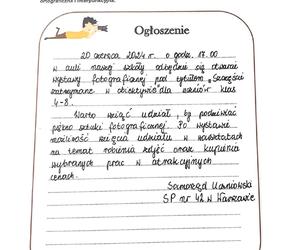 ortograficzna i interpunkcyjna.
Ogłoszenie
20 czerwca 2024 r. o godz. 17.00
w auli naszej szkoły odbędzie się otwarcie
wystawy fotograficznej pod tytułem „Szczęście
zatrzymane w obiektywie" dla uczniów klas
4-8.
Warto wziąć udział, by podziwiać
piękno sztuki fotograficznej. Po wystawie
możliwość wzięcia udziału w warsztatach
na temat robienia zdjęć oraz kupienia
wybranych prac w atrakcyjnych
cenach.
Samorząd Uczniowski
SP nr 42 w Warszawie